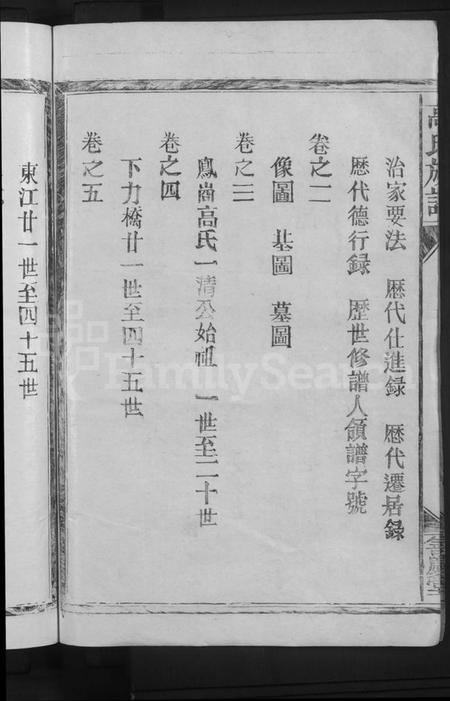 高氏族譜
治家要法 歷代仕進録 歷代遷居録
歷代德行録 歷世修譜人領譜字號
卷之二
像圖 基圖 墓圖
卷之三
鳳崗高氏一清公始祖 一世至二十世
卷之四
下力橋廿一世至四十五世
卷之五
東江廿一世至四十五世
FamilySearch